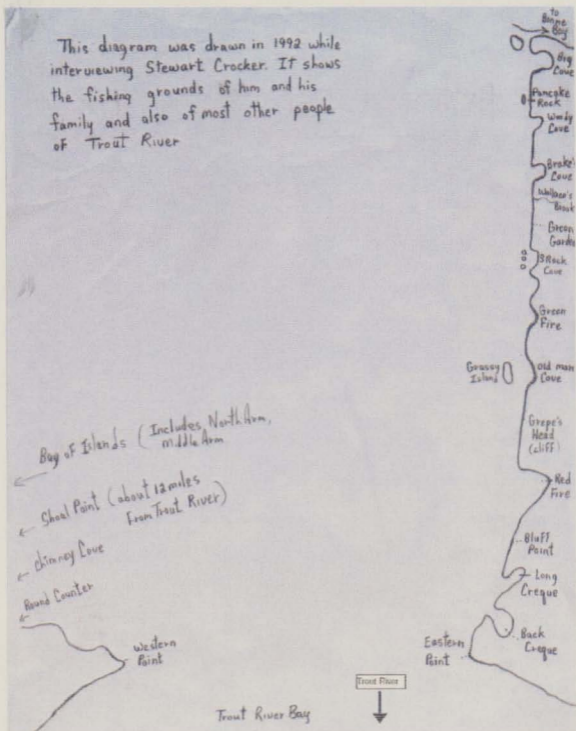 This diagram was drawn in 1992 while
interviewing Stewart Crocker. It shows
the fishing grounds of him and his
family and also of most other people
of Trout River
to
Bonne
Bay
Big
Cove
Pancake
Rock
Windy
Cove
Brake's
Cove
Wallace's
Brook
Green
Garden
3 Rock
Cove
Green
Fire
Grassy
Island
Old man
Cove
Grepe's
Head
(cliff)
Red
Fire
Bluff
Point
Long
Creque
Back
Creque
Eastern
Point
Bay of Islands (Includes, North Arm,
Middle Arm
Shoal Point (about 12 miles
From Trout River)
Chimney Cove
Round Counter
Western
Point
Trout River
Trout River Bay